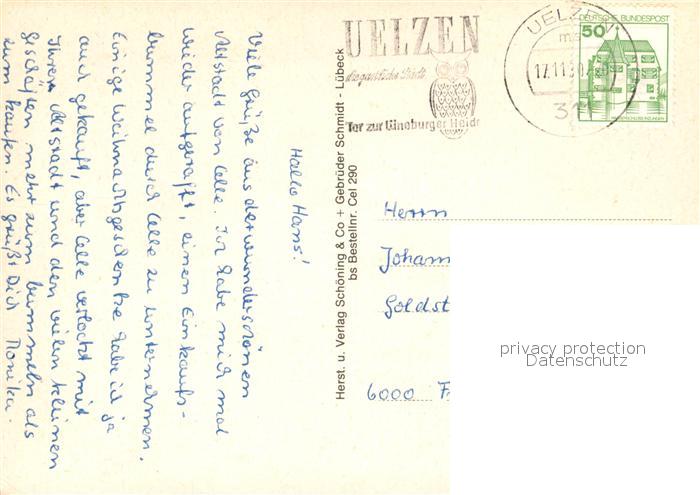 Hallo Hans!
Viele Grüße aus der wunderschönen
Altstadt von Celle. Ich habe mich mal
wieder aufgerafft, einen Einkaufs-
bummel durch Celle zu unternehmen.
Einige Weihnachtsgeschenke habe ich ja
auch gekauft, aber Celle verlockt mit
Ihrer Altstadt und den vielen kleinen
Geschäften mehr zum bummeln als
zum kaufen. Es grüßt Dich Monika.
Herst. u. Verlag Schöning & Co + Gebrüder Schmidt - Lübeck
bs Bestellnr. Cel 290
UELZEN
die gastliche Stadt
Tor zur Lüneburger Heide
UELZEN
17.11.80
311
DEUTSCHE BUNDESPOST
50
Herrn
Johann
Goldst
6000 F
privacy protection
Datenschutz